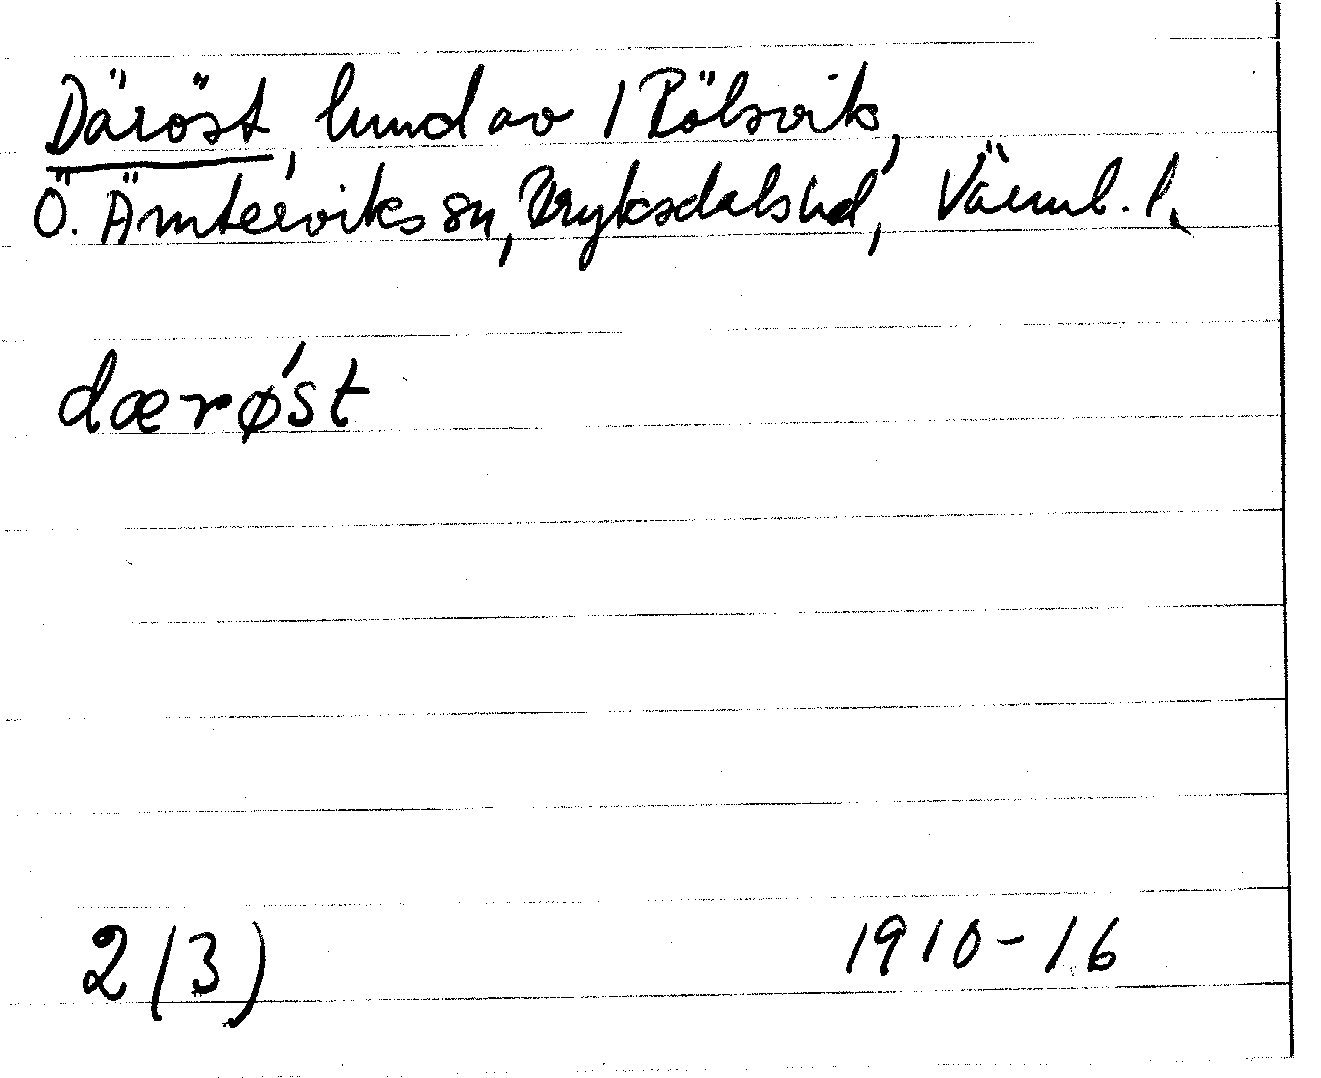 Däröst, hmd av 1 Rölsvik,
Ö. Ämterviks sn, Fryksdals hd, Värml. l.
dærǿst
2(3) 1910-16